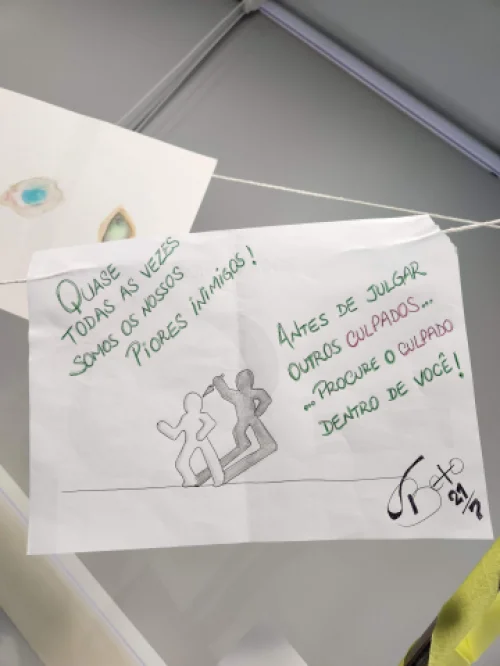 QUASE
TODAS AS VEZES
SOMOS OS NOSSOS
PIORES INIMIGOS!
ANTES DE JULGAR
OUTROS CULPADOS...
...PROCURE O CULPADO
DENTRO DE VOCÊ!
Beto
21/?